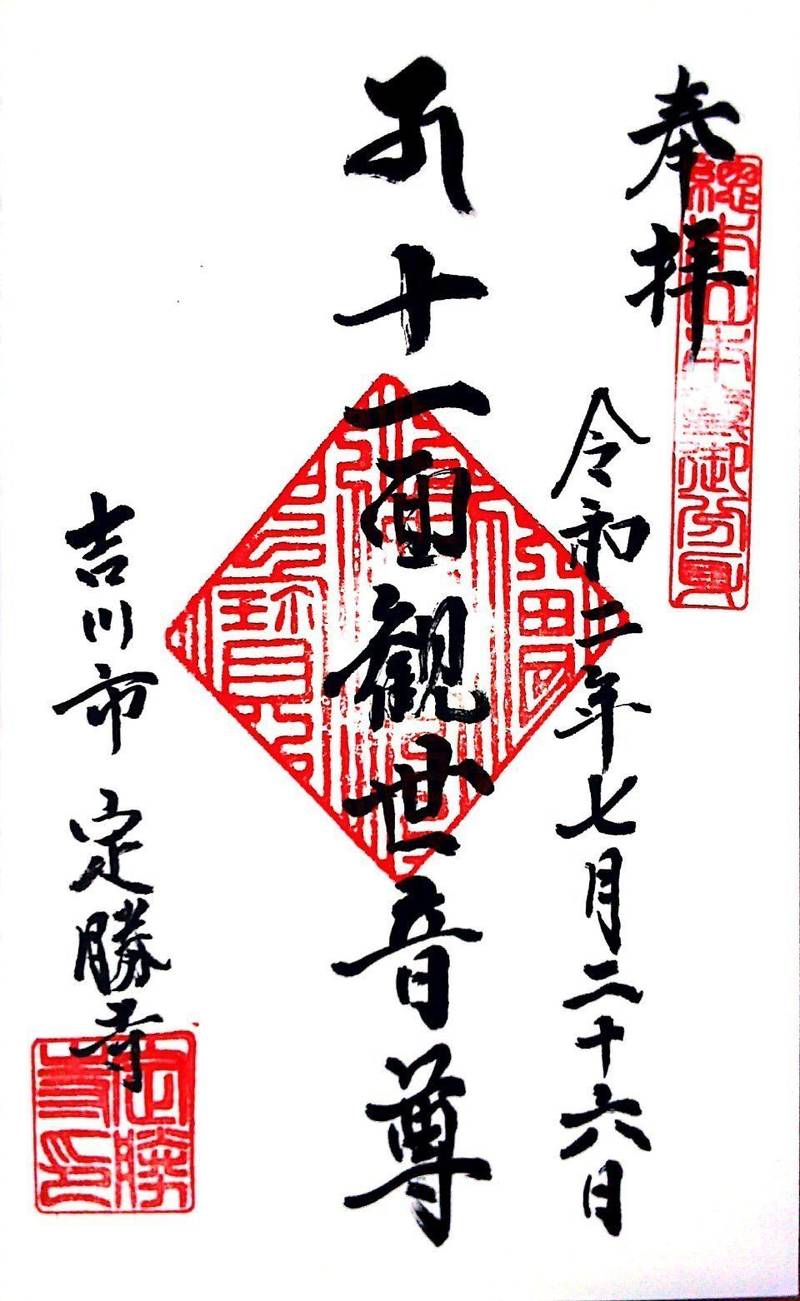 奉拝
令和二年七月二十六日
十一面観世音尊
吉川市 定勝寺
定勝寺印